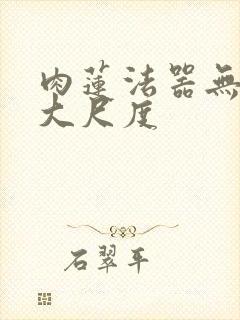 肉蓮法器無
大尺度
石翠平